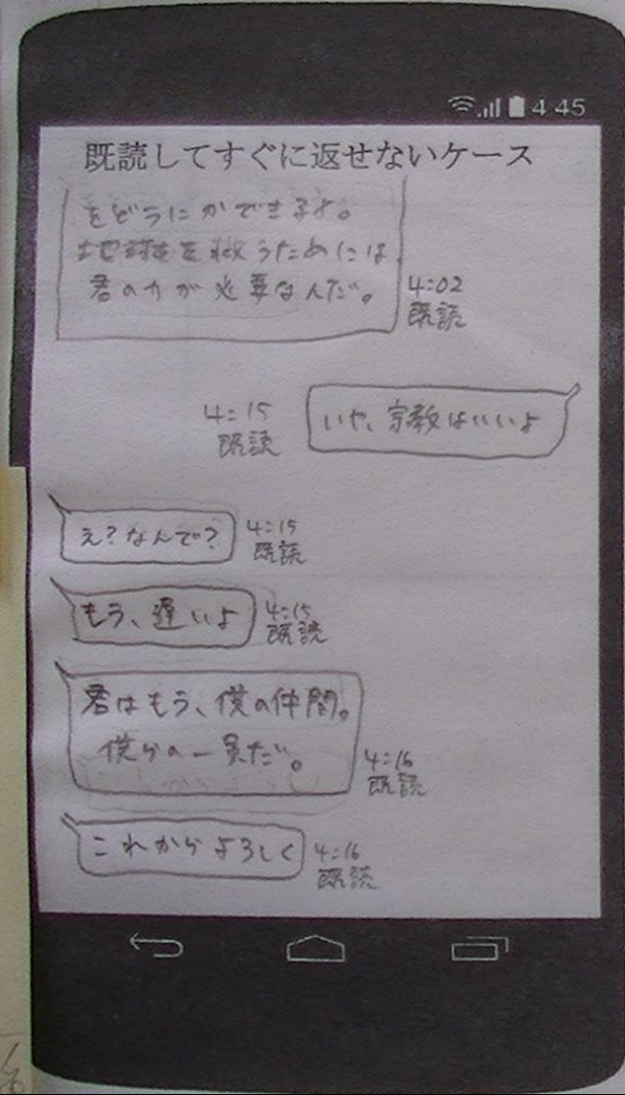 4 45
既読してすぐに返せないケース
をどうにかできるよ。
地球を救うためには
君の力が必要なんだ。
4:02
既読
4:15
既読
いや、宗教はいいよ
え?なんで?
4:15
既読
もう、遅いよ
4:15
既読
君はもう、僕の仲間。
僕らの一員だ。
4:16
既読
これからよろしく
4:16
既読